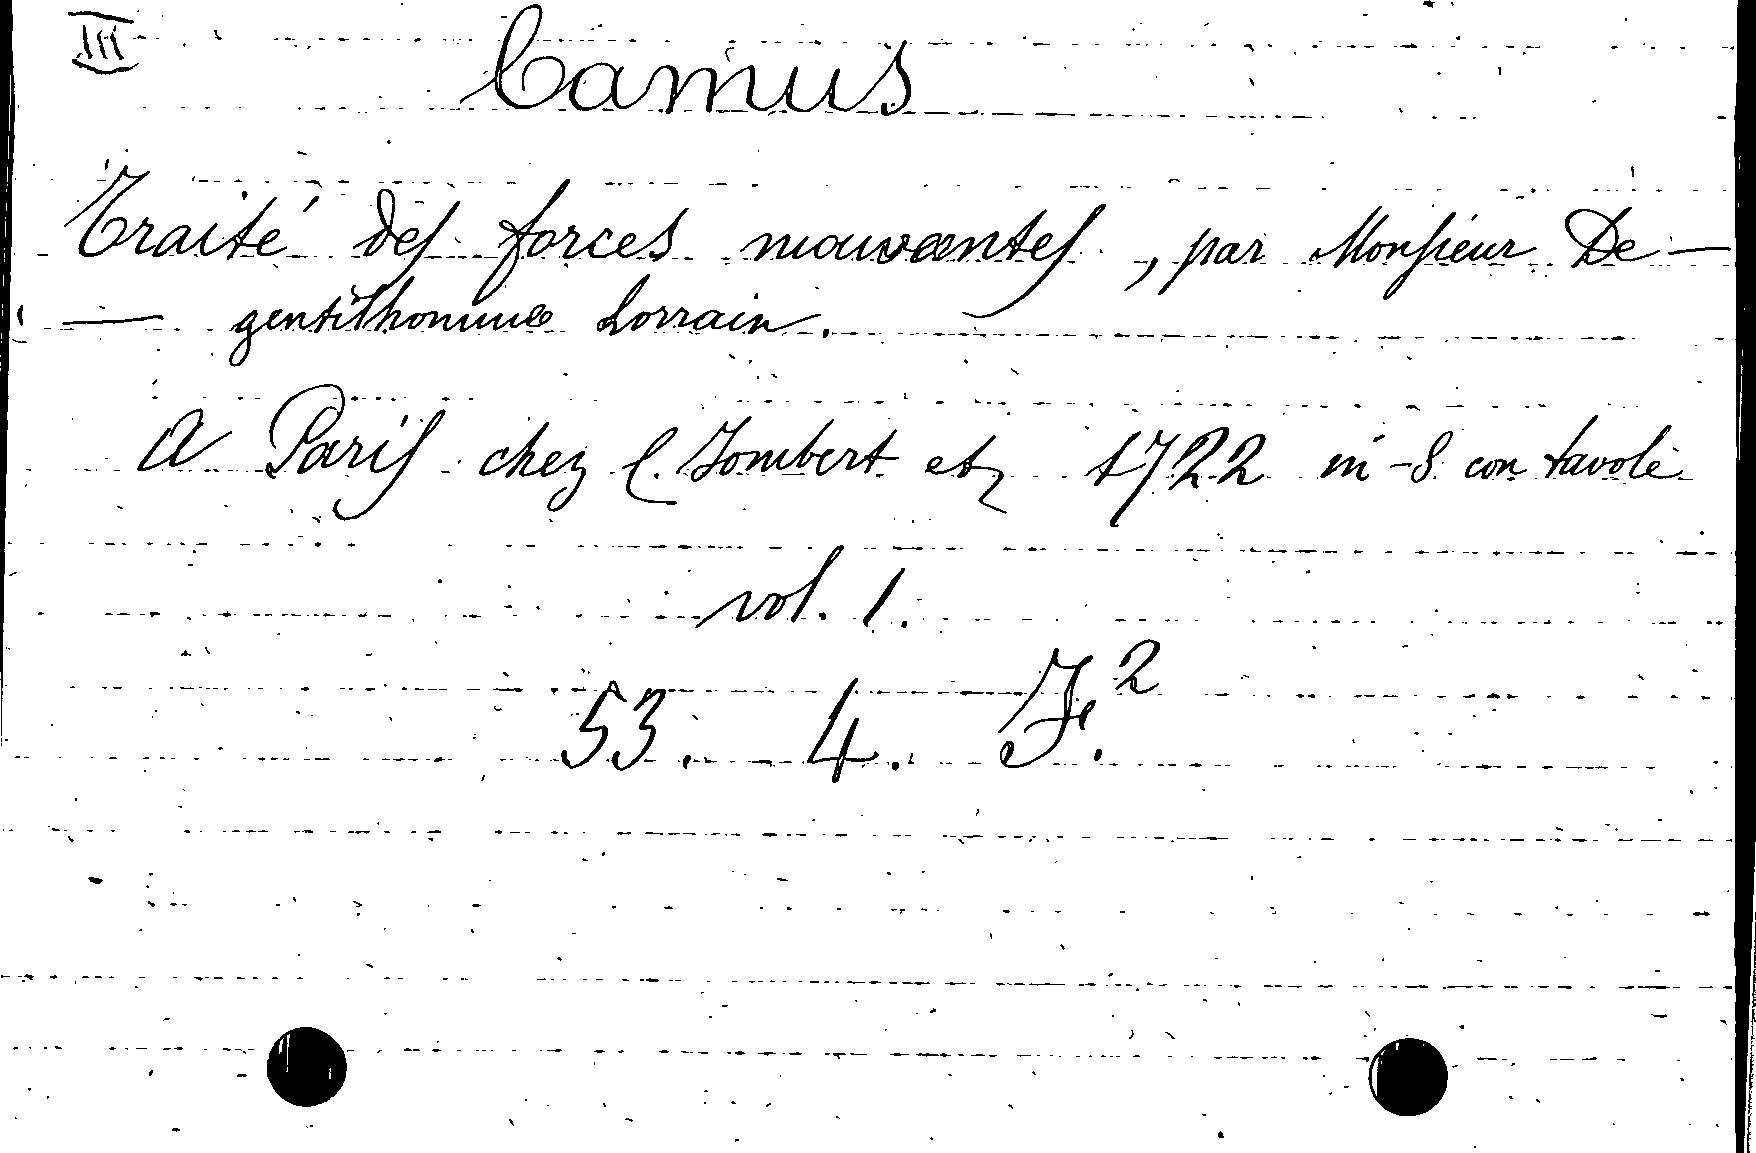 III
Camus
Traité des forces mouvantes, par Monsieur De —
— gentilhomme Lorrain.
A Paris chez C. Jombert etz 1722 in-8. con tavole
vol. 1.
53. 4. F.²